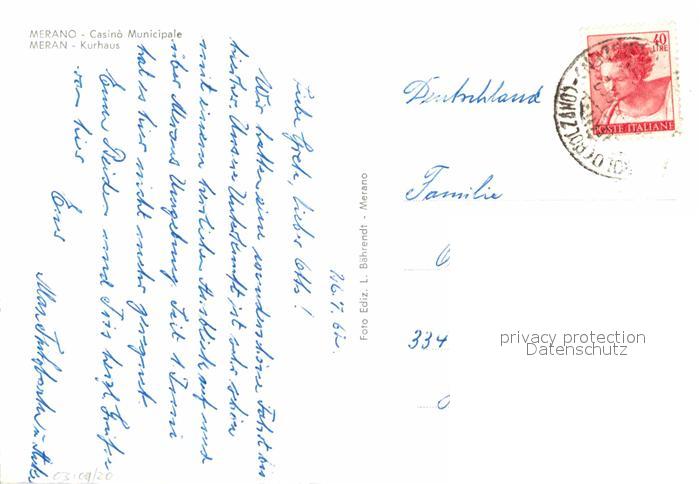 MERANO - Casinò Municipale
MERAN - Kurhaus
Liebe Grete, lieber Otto!
Wir hatten eine wunderschöne Fahrt bis
hierher. Unsere Unterkunft ist sehr schön
mit einem herrlichen Ausblick auf und
über Merans Umgebung. Seit 1 Juni
hat es hier nicht mehr geregnet.
Euch Beiden und Iris herzl. Grüße
von hier
Eure
Foto Ediz. L. Bährendt - Merano
Deutschland
Familie
334
40
LIRE
POSTE ITALIANE
privacy protection
Datenschutz
03:09/20